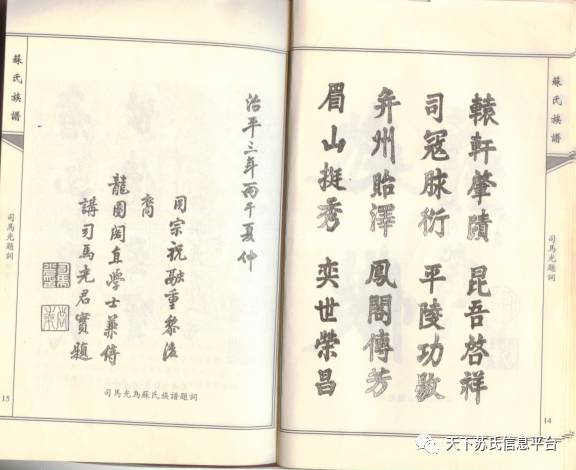 蘇氏族譜
司馬光題詞
轅軒肇蹟 昆吾啓祥
司寇脉衍 平陵功
并州貽澤 鳳閣傳芳
眉山挺秀 奕世榮昌
14
治平三年丙午夏仲
同宗祝融重黎後
裔
龍圖閣直學士兼侍
講司馬光君實題
司馬光為蘇氏族譜題詞
蘇氏族譜
司馬光題詞
15
天下苏氏信息平台